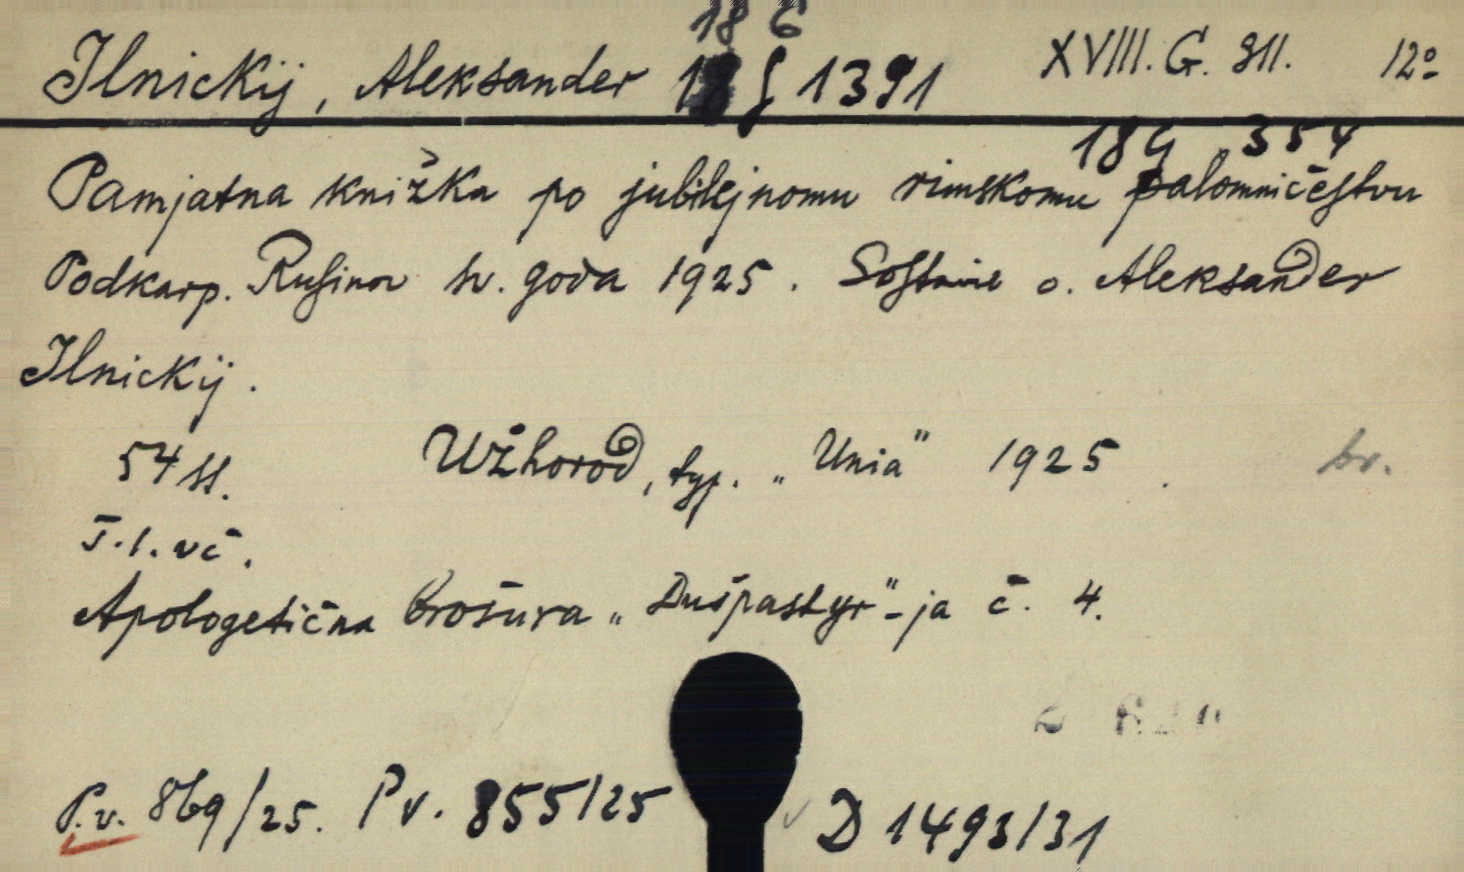 18 G
Ilnickij, Aleksander 18 G 1391 XVIII. G. 311. 12º
18 G 354
Pamjatna knižka po jubilejnomu rimskomu palomničestvu
Podkarp. Rusinov sv. goda 1925. Sostavil o. Aleksander
Ilnickij.
54 ss. Užhorod, typ. „Unia" 1925. br.
T. 1. vč.
Apologetična brošura „Dušpastyr"-ja č. 4.
P.v. 869/25. Pv. 855/25 D 1493/31